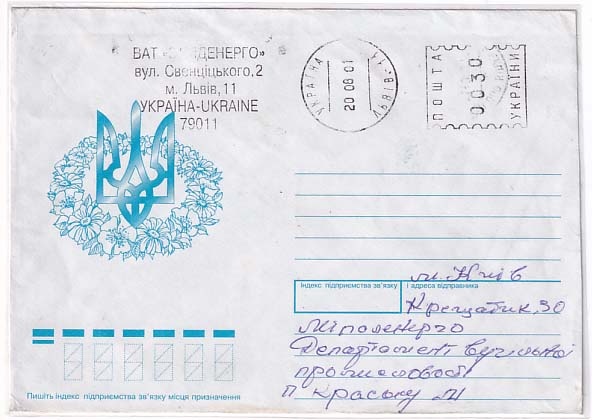 ВАТ ДЕНЕРГО»
вул. Свєнціцького,2
м. Львів,11
УКРАЇНА-UKRAINE
79011
УКРАЇНА
20 08 01
ЛЬВІВ-11
ПОШТА
0030
УКРАЇНИ
м. Київ
Індекс підприємства зв'язку і адреса відправника
Хрещатик, 30
Міпаленерго
Департамент вугільної
промисловості
п. Краську
Пишіть індекс підприємства зв'язку місця призначення